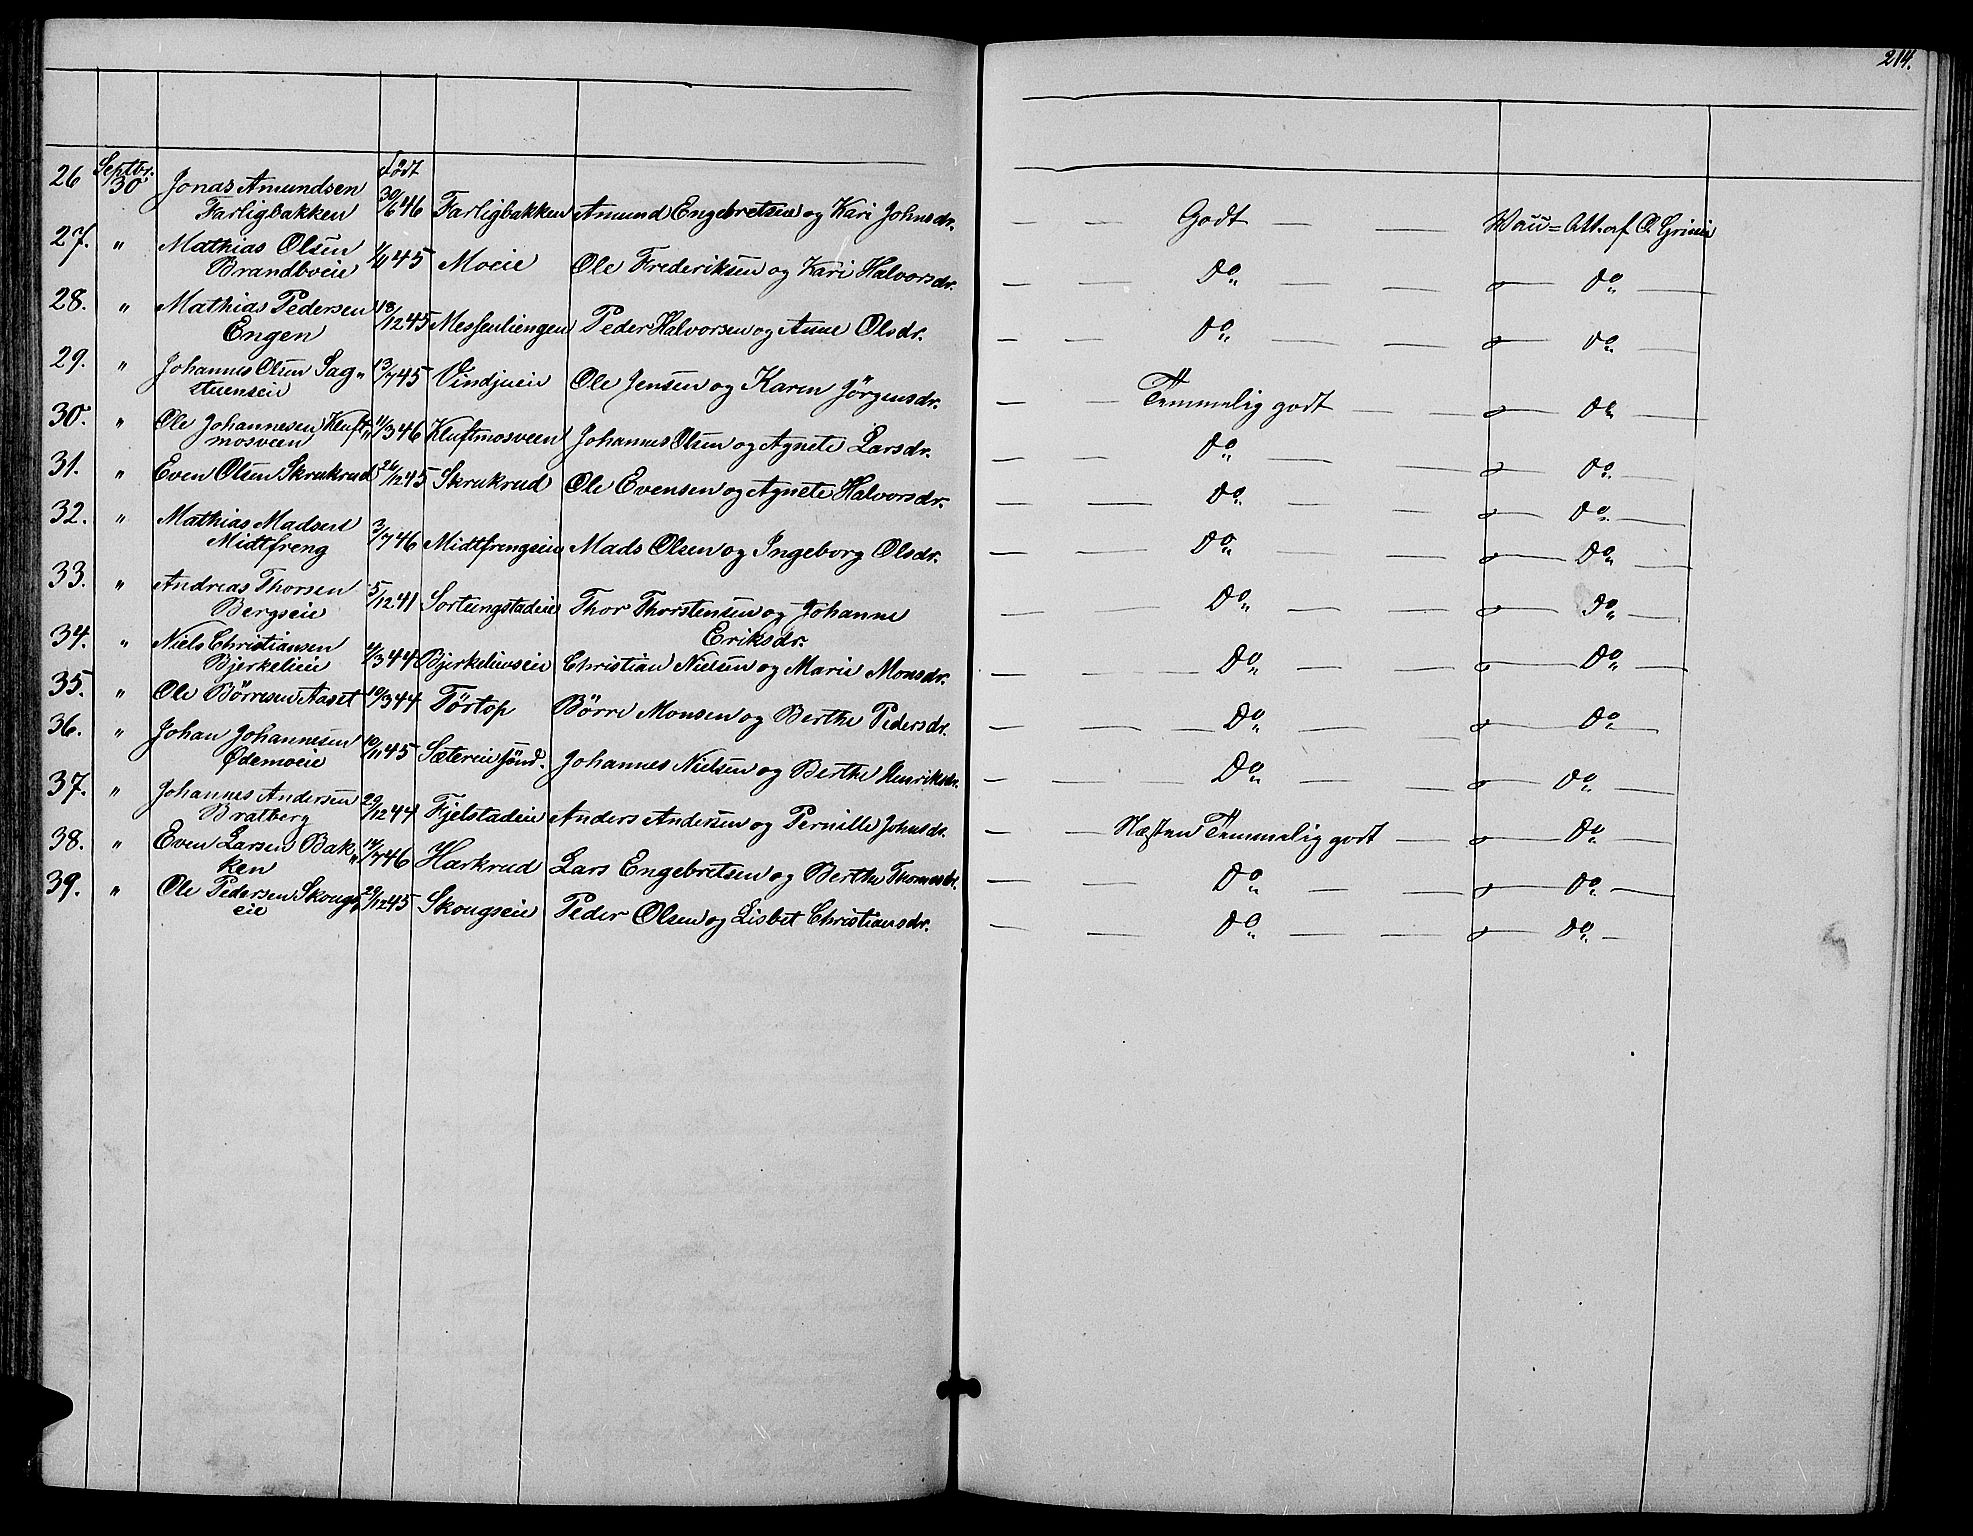 214.
Septbr. født
26 30 Jonas Amundsen
Farligbakken 30/6 46 Farligbakken Amund Engebretsen og Kari Johnsdr. — — Godt — — —
27. " Mathias Olsen
Brandboeie 1/11 45 Moeie Ole Frederiksen og Kari Halvorsdr. — — Do — — — Do —
28. " Mathias Pedersen
Engen 18/12 45 Messenliengen Peder Halvorsen og Anne Olsdr. — — Do — — — Do —
29. " Johannes Olsen Sag„
stuenseie 13/7 45 Vindjueie Ole Jensen og Karen Jörgensdr. — — Temmelig godt — — — Do —
30. " Ole Johannesen Kluft„
mosveen 11/3 46 Kluftmosveen Johannes Olsen og Agnete Larsdr. — — Do — — — Do —
31. " Even Olsen Skrukrud 26/12 45 Skrukrud Ole Evensen og Agnete Halvorsdr. — — Do — — — Do —
32. " Mathias Madsen
Midtfreng 3/7 46 Midtfrengseie Mads Olsen og Ingeborg Olsdr. — — Do — — — Do —
33. " Andreas Thorsen
Bergseie 5/12 41 Sortungstadeie Thor Thorstensen og Johanne
Eriksdr. — — Do — — — Do —
34. " Niels Christiansen
Bjerkelieie 4/3 44 Bjerkelieseie Christian Nielsen og Marie Monsdr. — — Do — — — Do —
35. " Ole Börresen Aaset 10/3 44 Törtop Börre Monsen og Berthe Pedersdr. — — Do — — — Do —
36. " Johan Johannesen
Ødemoeie 10/11 45 Sætereie sönd. Johannes Nielsen og Berthe Henriksdr. — — Do — — — Do —
37. " Johannes Andersen
Bratberg 29/12 44 Fjelstadeie Anders Andersen og Pernille Johnsdr. — — Næsten Temmelig godt — — Do —
38. " Even Larsen Bak„
ken 14/7 46 Harkrud Lars Engebretsen og Berthe Thomasdr. — — Do — — — Do —
39. " Ole Pedersen Skougs„
eie 29/12 45 Skougseie Peder Olsen og Lisbet Christiansdr. — — Do — — — Do —